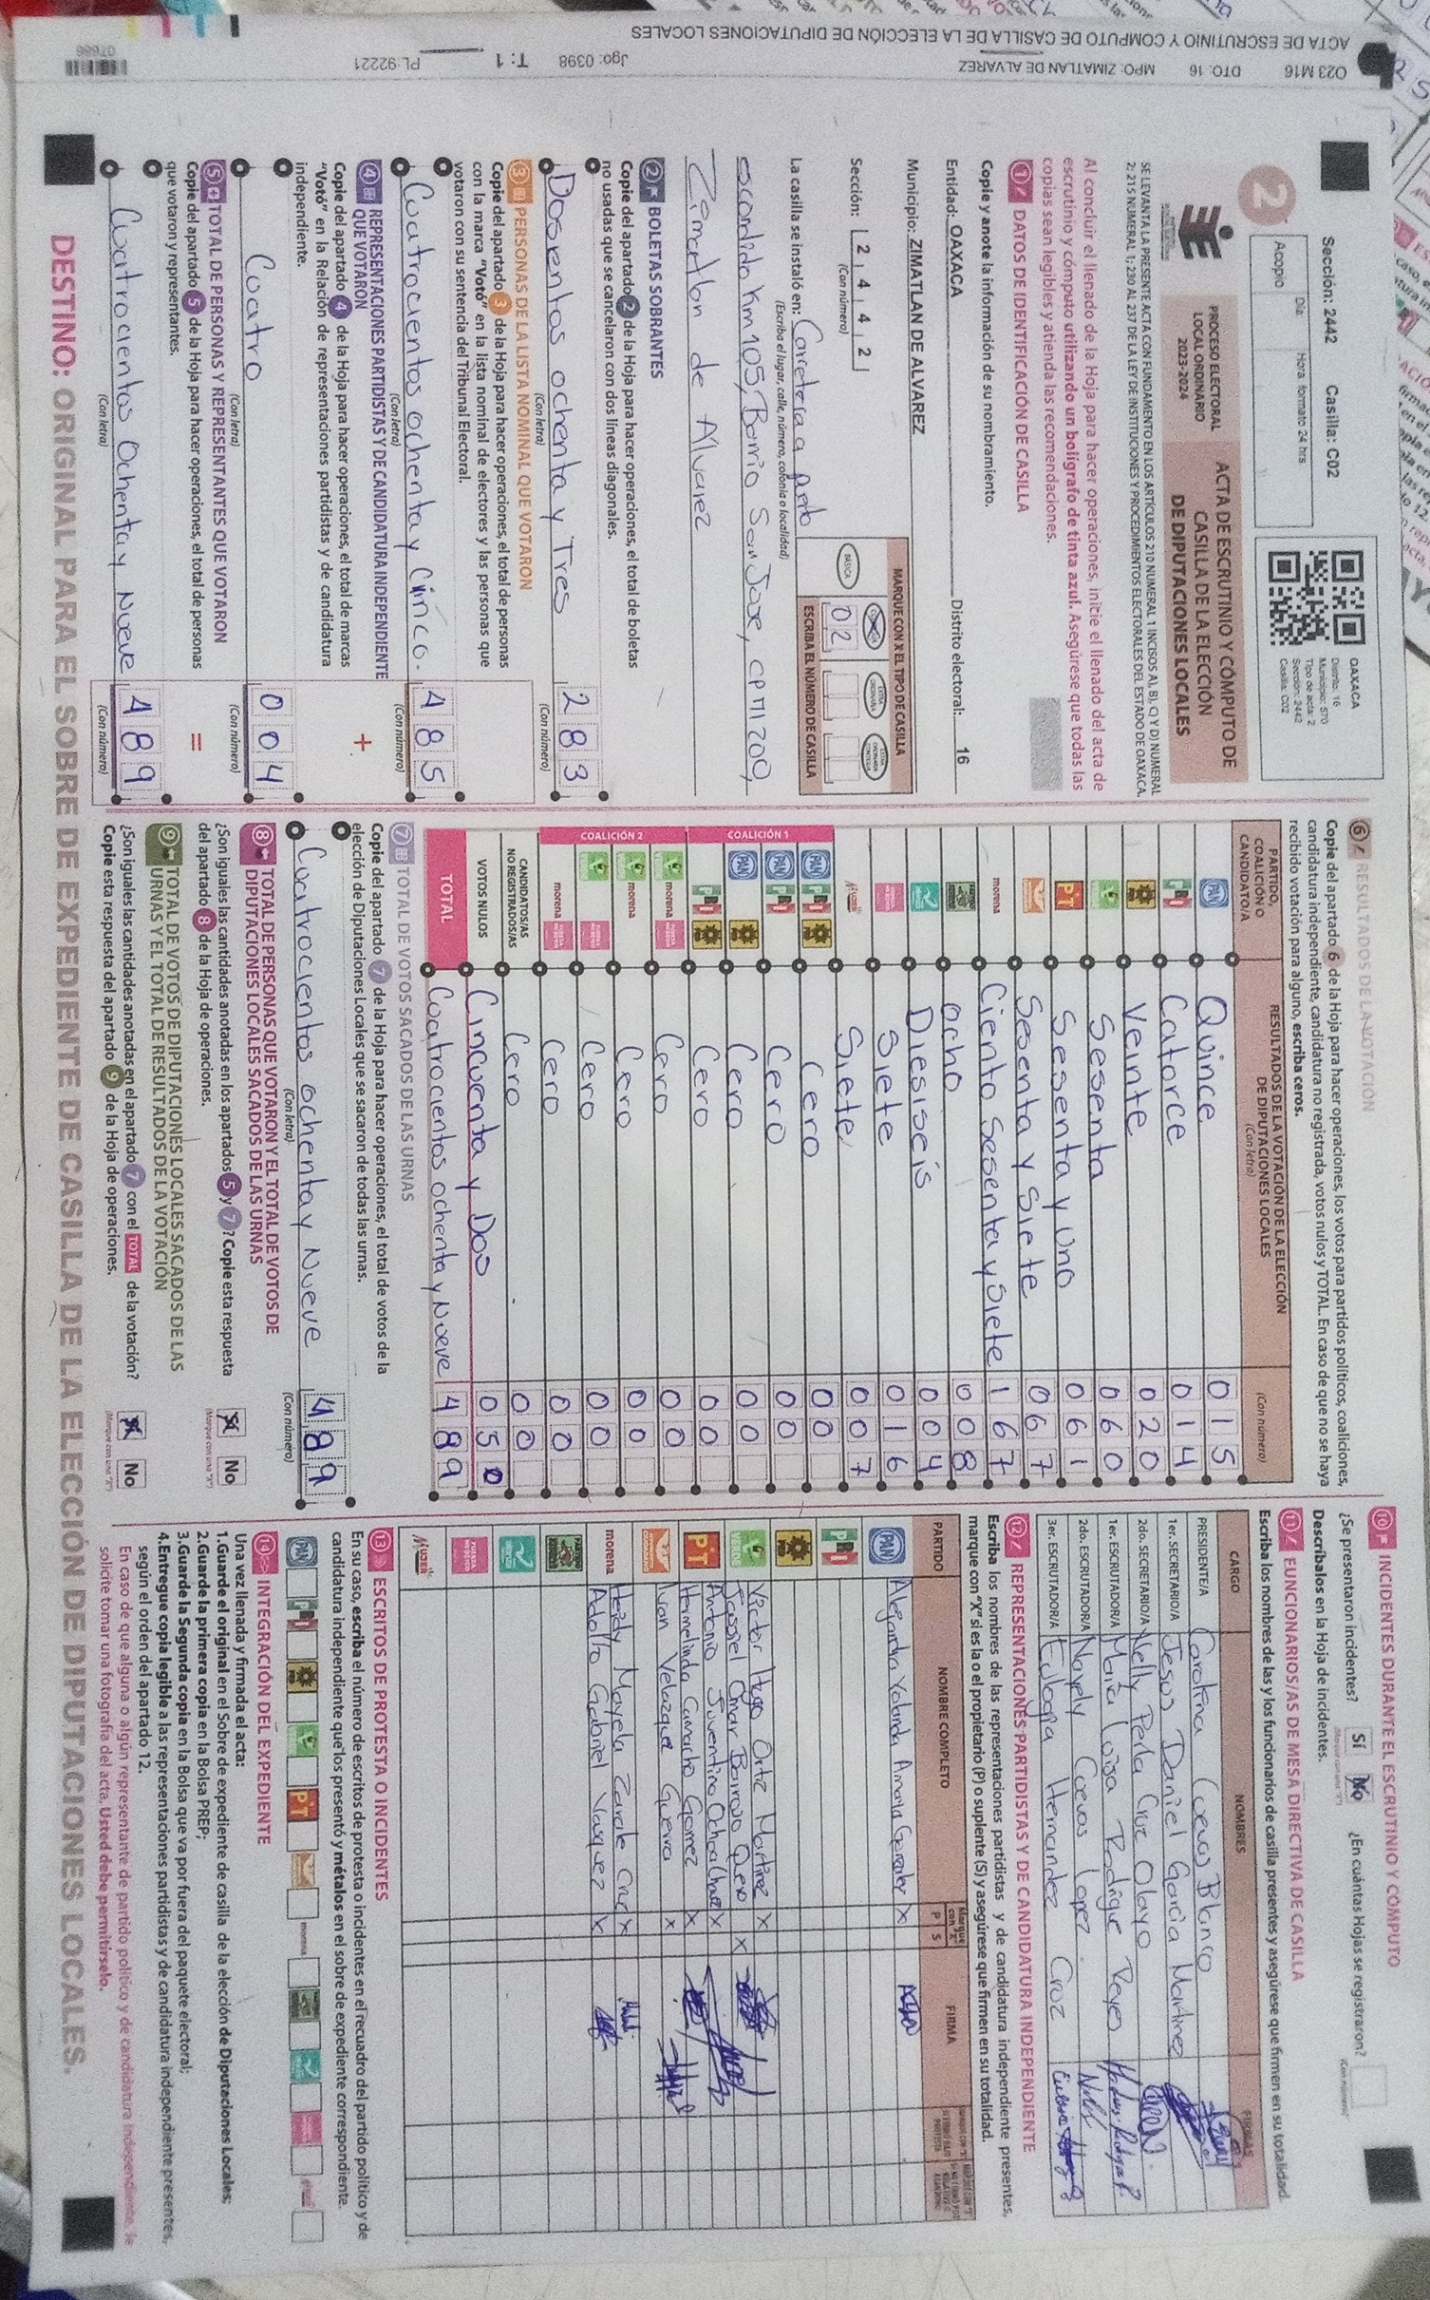 Sección: 2442 Casilla: C02
Acopio
Día:
Hora: formato 24 hrs
OAXACA
Distrito: 16
Municipio: 570
Tipo de acta: 2
Sección: 2442
Casilla: C02
2
PROCESO ELECTORAL
LOCAL ORDINARIO
2023-2024
ACTA DE ESCRUTINIO Y CÓMPUTO DE
CASILLA DE LA ELECCIÓN
DE DIPUTACIONES LOCALES
SE LEVANTA LA PRESENTE ACTA CON FUNDAMENTO EN LOS ARTÍCULOS 210 NUMERAL 1 INCISOS A), B), C) Y D) NUMERAL
2; 215 NUMERAL 1; 230 AL 237 DE LA LEY DE INSTITUCIONES Y PROCEDIMIENTOS ELECTORALES DEL ESTADO DE OAXACA.
Al concluir el llenado de la Hoja para hacer operaciones, inicie el llenado del acta de
escrutinio y cómputo utilizando un bolígrafo de tinta azul. Asegúrese que todas las
copias sean legibles y atienda las recomendaciones.
1 DATOS DE IDENTIFICACIÓN DE CASILLA
Copie y anote la información de su nombramiento.
Entidad: OAXACA Distrito electoral: 16
Municipio: ZIMATLAN DE ALVAREZ
Sección: 2 4 4 2
(Con número)
MARQUE CON X EL TIPO DE CASILLA
BÁSICA
0 2
ESCRIBA EL NÚMERO DE CASILLA
La casilla se instaló en: Carretera a
(Escriba el lugar, calle, número, colonia o localidad)
escondido Km 105, Barrio San Jose, CP 71200,
Zimatlan de Alvarez
2 BOLETAS SOBRANTES
Copie del apartado 2 de la Hoja para hacer operaciones, el total de boletas
no usadas que se cancelaron con dos líneas diagonales.
Dosientos ochenta y Tres 2 8 3
(Con letra) (Con número)
3 PERSONAS DE LA LISTA NOMINAL QUE VOTARON
Copie del apartado 3 de la Hoja para hacer operaciones, el total de personas
con la marca "Votó" en la lista nominal de electores y las personas que
votaron con su sentencia del Tribunal Electoral.
Cuatrocientos ochenta y Cinco. 4 8 5
(Con letra) (Con número)
4 REPRESENTACIONES PARTIDISTAS Y DE CANDIDATURA INDEPENDIENTE
QUE VOTARON
Copie del apartado 4 de la Hoja para hacer operaciones, el total de marcas
"Votó" en la Relación de representaciones partidistas y de candidatura
independiente.
+
Cuatro 0 0 4
(Con letra) (Con número)
5 TOTAL DE PERSONAS Y REPRESENTANTES QUE VOTARON
Copie del apartado 5 de la Hoja para hacer operaciones, el total de personas
que votaron y representantes.
=
Cuatrocientos Ochenta y Nueve 4 8 9
(Con letra) (Con número)
6 RESULTADOS DE LA VOTACIÓN
Copie del apartado 6 de la Hoja para hacer operaciones, los votos para partidos políticos, coaliciones,
candidatura independiente, candidatura no registrada, votos nulos y TOTAL. En caso de que no se haya
recibido votación para alguno, escriba ceros.
PARTIDO,
COALICIÓN O
CANDIDATO/A
RESULTADOS DE LA VOTACIÓN DE LA ELECCIÓN
DE DIPUTACIONES LOCALES
(Con letra) (Con número)
PAN Quince 0 1 5
PRI Catorce 0 1 4
Veinte 0 2 0
Sesenta 0 6 0
PT Sesenta y Uno 0 6 1
Sesenta y Siete 0 6 7
morena Ciento Sesenta y Siete 1 6 7
ocho 0 0 8
Diesiseis 0 0 4
Siete 0 1 6
Siete 0 0 7
COALICIÓN 1
PAN PRI Cero 0 0
PAN PRI Cero 0 0
PAN Cero 0 0
PRI Cero 0 0
COALICIÓN 2
morena Cero 0 0
morena Cero 0 0
Cero 0 0
morena Cero 0 0
CANDIDATOS/AS
NO REGISTRADOS/AS Cero 0 0
VOTOS NULOS Cincuenta y Dos 0 5 0
TOTAL Cuatrocientos ochenta y Nueve 4 8 9
7 TOTAL DE VOTOS SACADOS DE LAS URNAS
Copie del apartado 7 de la Hoja para hacer operaciones, el total de votos de la
elección de Diputaciones Locales que se sacaron de todas las urnas.
Cuatrocientos ochenta y Nueve 4 8 9
(Con letra) (Con número)
8 TOTAL DE PERSONAS QUE VOTARON Y EL TOTAL DE VOTOS DE
DIPUTACIONES LOCALES SACADOS DE LAS URNAS
¿Son iguales las cantidades anotadas en los apartados 5 y 7? Copie esta respuesta
del apartado 8 de la Hoja de operaciones.
No
9 TOTAL DE VOTOS DE DIPUTACIONES LOCALES SACADOS DE LAS
URNAS Y EL TOTAL DE RESULTADOS DE LA VOTACIÓN
¿Son iguales las cantidades anotadas en el apartado 7 con el TOTAL de la votación?
Copie esta respuesta del apartado 9 de la Hoja de operaciones.
No
10 INCIDENTES DURANTE EL ESCRUTINIO Y CÓMPUTO
¿Se presentaron incidentes? Sí No ¿En cuántas Hojas se registraron?
Descríbalos en la Hoja de incidentes.
11 FUNCIONARIOS/AS DE MESA DIRECTIVA DE CASILLA
Escriba los nombres de las y los funcionarios de casilla presentes y asegúrese que firmen en su totalidad.
CARGO NOMBRES FIRMAS
PRESIDENTE/A Carolina Cuevas Blanco
1er. SECRETARIO/A Jesus Daniel Garcia Martinez
2do. SECRETARIO/A Nelly Perla Cruz Olayo
1er. ESCRUTADOR/A Maria Luisa Rodrigue Reyes
2do. ESCRUTADOR/A Nayely Cuevas Lopez
3er. ESCRUTADOR/A Eulogia Hernandez Cruz
12 REPRESENTACIONES PARTIDISTAS Y DE CANDIDATURA INDEPENDIENTE
Escriba los nombres de las representaciones partidistas y de candidatura independiente presentes,
marque con "X" si es la o el propietario (P) o suplente (S) y asegúrese que firmen en su totalidad.
PARTIDO NOMBRE COMPLETO P S FIRMA
PAN Alejandra Yolanda Arnaila Gonzalez X
PRI
Victor Hugo Ortiz Martinez X
Jassiel Omar Barroso Quero X
PT Antonio Juventino Ochoa X
Hermelinda Camacho Gomez X
Ivan Velazquez Guerra X
morena Heidy Mayela Zarate Cruz X
Adolfo Gabriel Vasquez X
13 ESCRITOS DE PROTESTA O INCIDENTES
En su caso, escriba el número de escritos de protesta o incidentes en el recuadro del partido político y de
candidatura independiente que los presentó y métalos en el sobre de expediente correspondiente.
14 INTEGRACIÓN DEL EXPEDIENTE
Una vez llenada y firmada el acta:
1.Guarde el original en el Sobre de expediente de casilla de la elección de Diputaciones Locales;
2.Guarde la primera copia en la Bolsa PREP;
3.Guarde la Segunda copia en la Bolsa que va por fuera del paquete electoral;
4.Entregue copia legible a las representaciones partidistas y de candidatura independiente presentes,
según el orden del apartado 12.
En caso de que alguna o algún representante de partido político y de candidatura independiente, le
solicite tomar una fotografía del acta, Usted debe permitírselo.
DESTINO: ORIGINAL PARA EL SOBRE DE EXPEDIENTE DE CASILLA DE LA ELECCIÓN DE DIPUTACIONES LOCALES.
O23 M16 DTO: 16 MPO: ZIMATLAN DE ALVAREZ Jgo: 0398 T: 1 PL: 92221
ACTA DE ESCRUTINIO Y COMPUTO DE CASILLA DE LA ELECCIÓN DE DIPUTACIONES LOCALES
07686